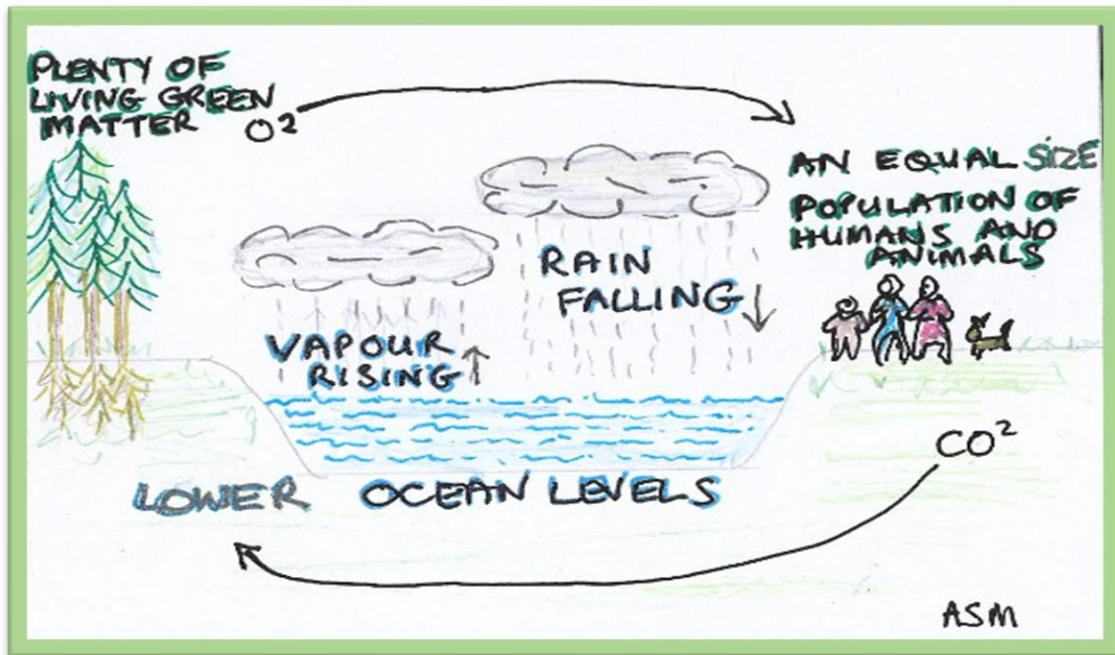 PLENTY OF
LIVING GREEN
MATTER O²
AN EQUAL SIZE
POPULATION OF
HUMANS AND
ANIMALS
RAIN
FALLING
VAPOUR
RISING
LOWER OCEAN LEVELS
CO²
ASM